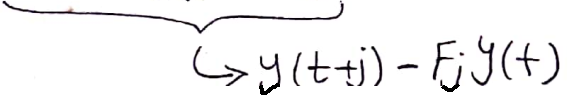 ↳ y(t+j) - Fj y(t)